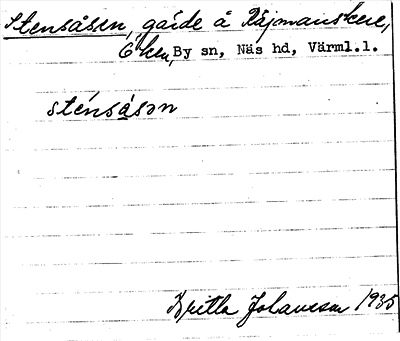 Stensåsen, gärde å Råjmanskere,
Eken, By sn, Näs hd, Värml.l.
sténsåsən
Britta Johansson 1935